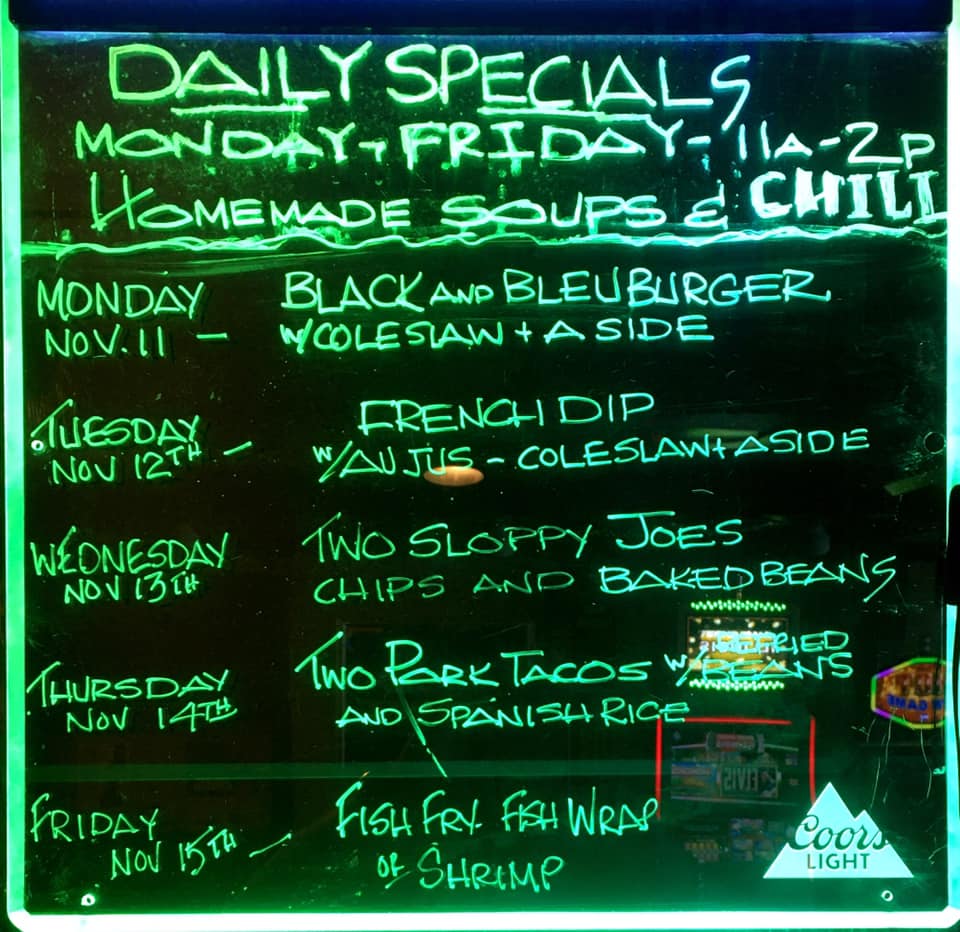 DAILY SPECIALS
MONDAY - FRIDAY - 11A - 2P
HOMEMADE SOUPS & CHILI
MONDAY BLACK AND BLEU BURGER
NOV. 11 - W/COLESLAW + A SIDE
TUESDAY FRENCH DIP
NOV 12TH - W/AU JUS - COLESLAW + A SIDE
WEDNESDAY TWO SLOPPY JOES
NOV 13TH CHIPS AND BAKED BEANS
THURSDAY TWO PORK TACOS W/ REFRIED BEANS
NOV 14TH AND SPANISH RICE
FRIDAY FISH FRY FISH WRAP
NOV 15TH - OR SHRIMP
ELVIS
Coors
LIGHT